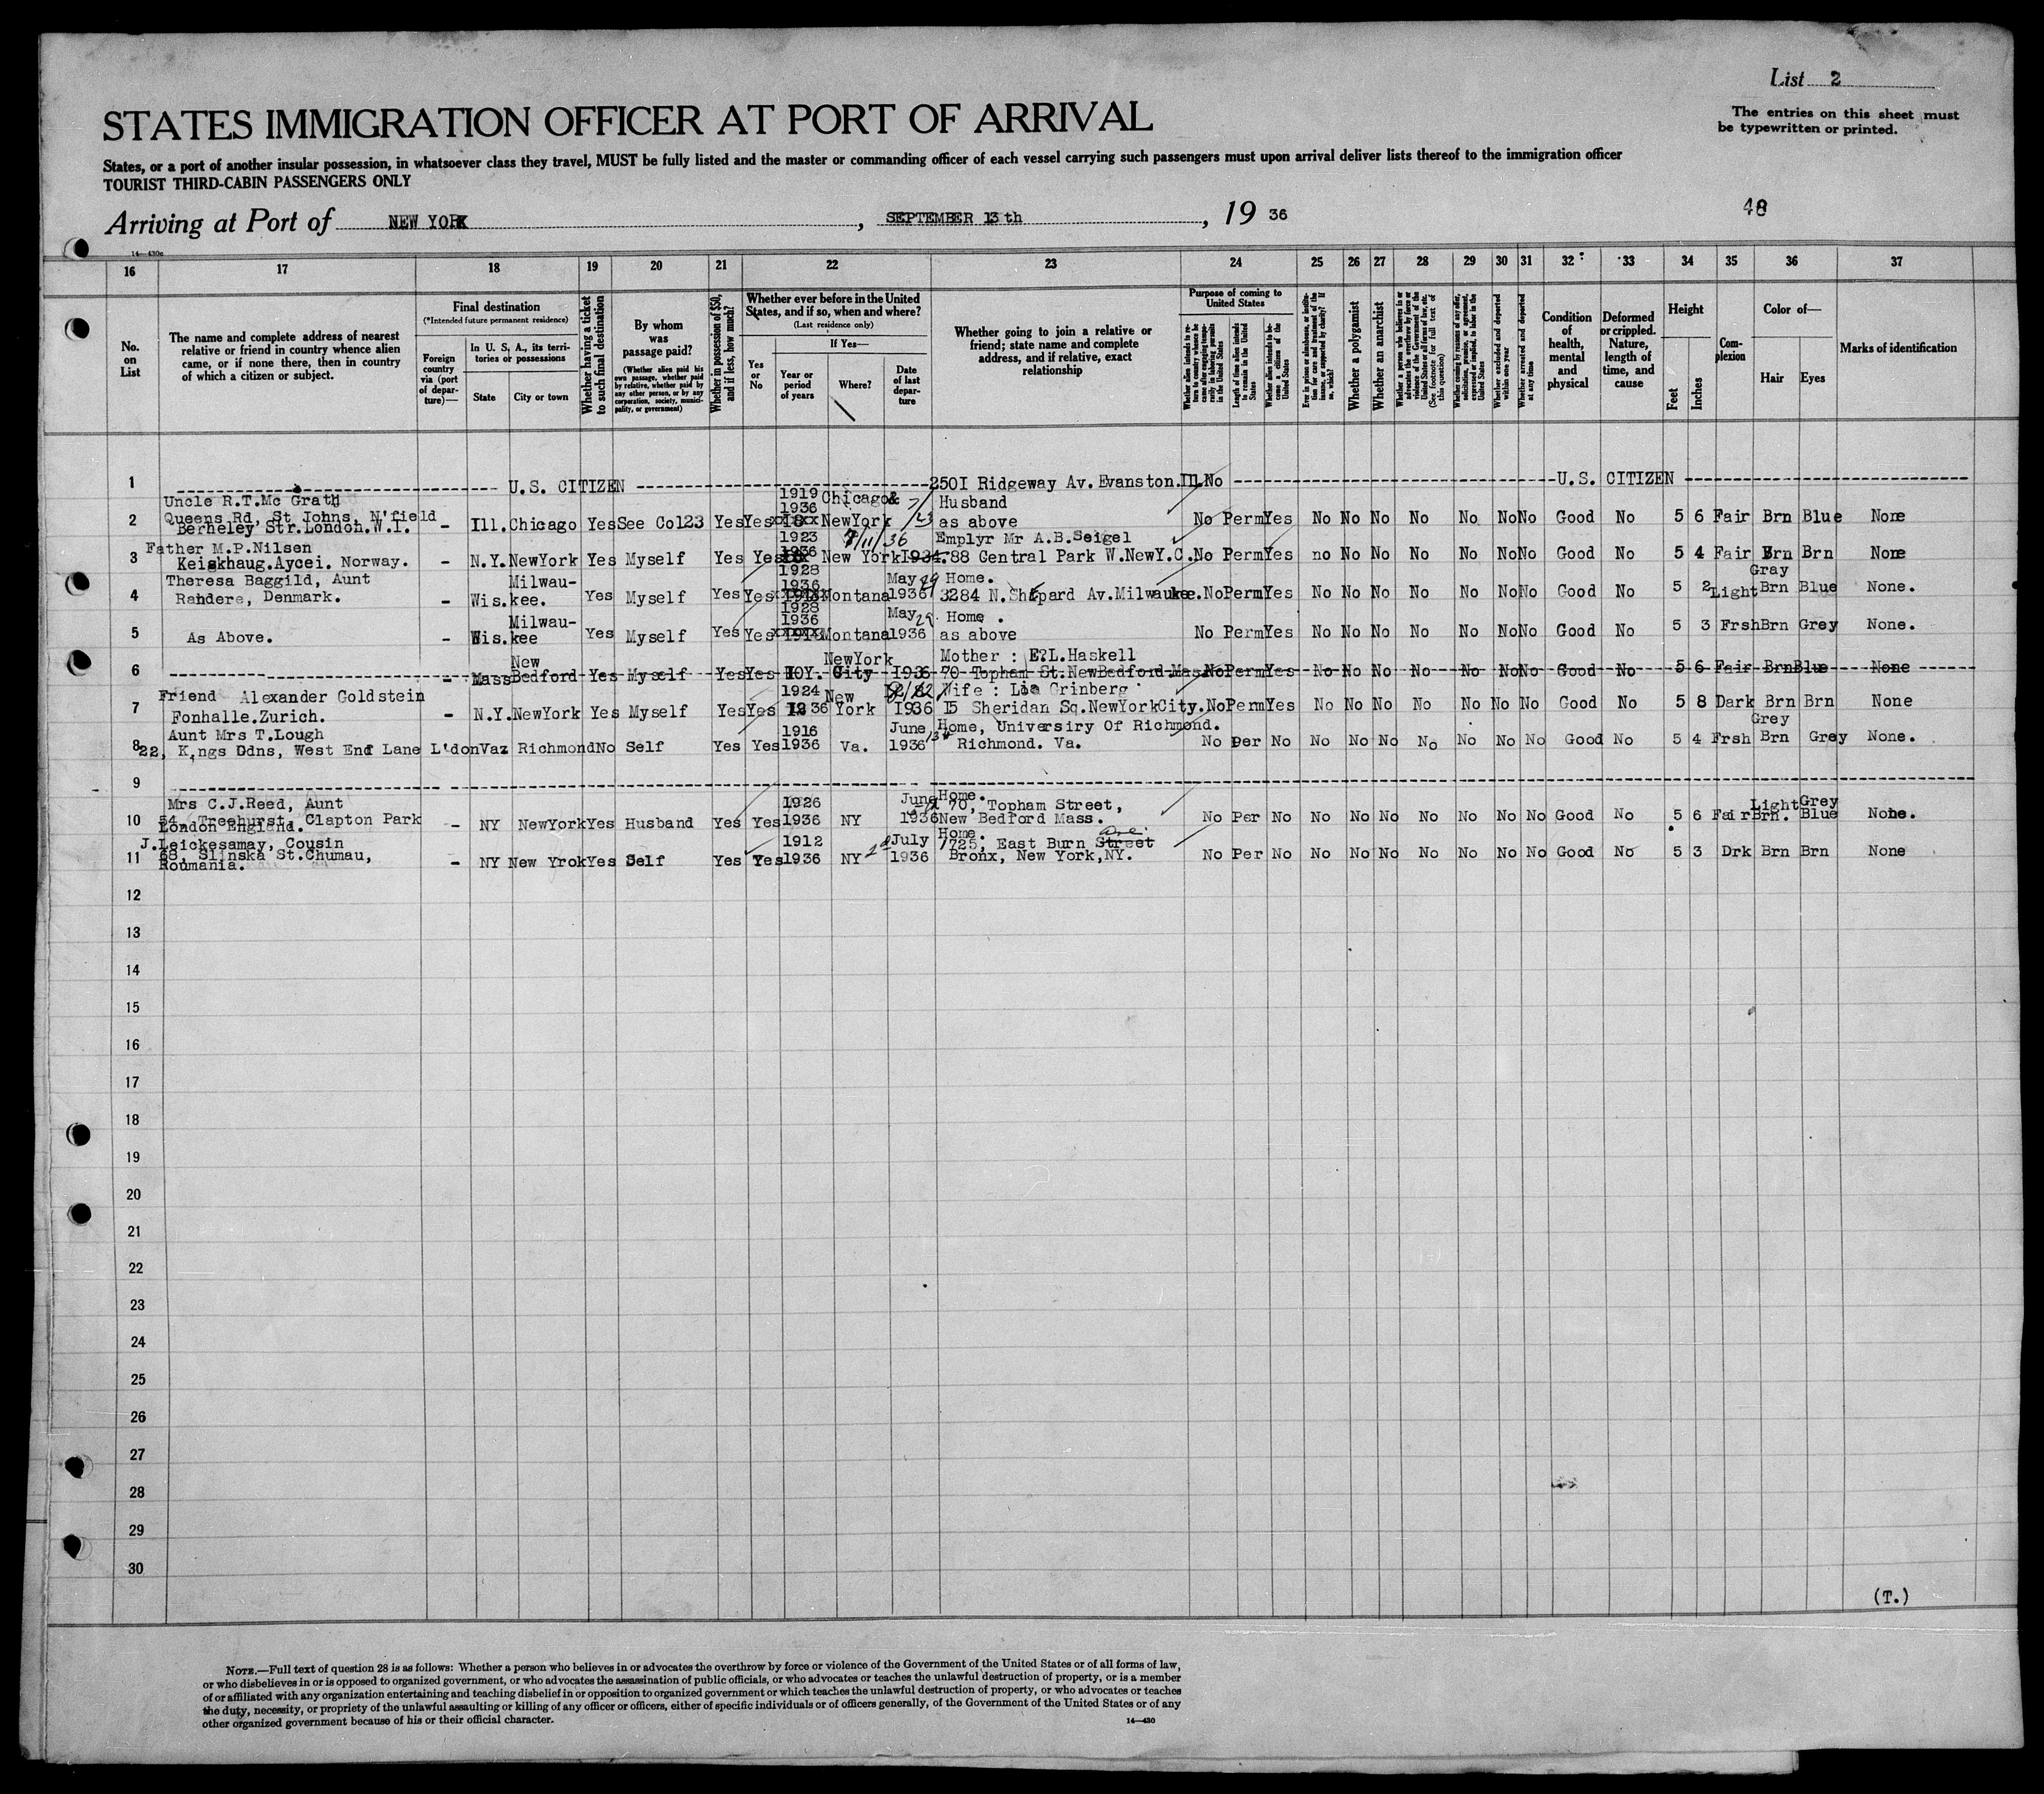 List 2
The entries on this sheet must
be typewritten or printed.
STATES IMMIGRATION OFFICER AT PORT OF ARRIVAL
States, or a port of another insular possession, in whatsoever class they travel, MUST be fully listed and the master or commanding officer of each vessel carrying such passengers must upon arrival deliver lists thereof to the immigration officer
TOURIST THIRD-CABIN PASSENGERS ONLY
Arriving at Port of NEW YORK, SEPTEMBER 13th, 19 36
48
14—430c
16 17 18 19 20 21 22 23 24 25 26 27 28 29 30 31 32 33 34 35 36 37
No. on List
The name and complete address of nearest relative or friend in country whence alien came, or if none there, then in country of which a citizen or subject.
Final destination
(*Intended future permanent residence)
Foreign country via (port of departure)—
In U. S. A., its territories or possessions
State
City or town
Whether having a ticket to such final destination
By whom was passage paid?
(Whether alien paid his own passage, whether paid by relative, whether paid by any other person, or by any corporation, society, municipality, or government)
Whether in possession of $50, and if less, how much?
Whether ever before in the United States, and if so, when and where?
(Last residence only)
Yes or No
If Yes—
Year or period of years
Where?
Date of last departure
Whether going to join a relative or friend; state name and complete address, and if relative, exact relationship
Purpose of coming to United States
Whether alien intends to return to country whence he came after engaging temporarily in laboring pursuits in the United States
Length of time alien intends to remain in the United States
Whether alien intends to become a citizen of the United States
Ever in prison or almshouse, or institution for care and treatment of the insane, or supported by charity? If so, which?
Whether a polygamist
Whether an anarchist
Whether a person who believes in or advocates the overthrow by force or violence of the Government of the United States or all forms of law, etc. (See footnote for full text of this question)
Whether coming by reason of any offer, solicitation, promise, or agreement, expressed or implied, to labor in the United States
Whether excluded and deported within one year
Whether arrested and deported at any time
Condition of health, mental and physical
Deformed or crippled. Nature, length of time, and cause
Height
Feet
Inches
Complexion
Color of—
Hair
Eyes
Marks of identification
1 U.S. CITIZEN 2501 Ridgeway Av. Evanston. Ill. No U.S. CITIZEN
Uncle R.T.Mc Grath 1919 Chicago& Husband
Queens Rd, St Johns, N'field 1936
2 Berkeley Str.London.W.I. - Ill. Chicago Yes See Col23 Yes Yes NewYork as above No Perm Yes No No No No No No No Good No 5 6 Fair Brn Blue None
Father M.P.Nilsen 1923 7/11/36 Emplyr Mr A.B.Seigel
3 Keiskhaug.Aycei. Norway. - N.Y. NewYork Yes Myself Yes Yes 1936 New York 1934. 88 Central Park W.NewY.C. No Perm Yes no No No No No No No Good No 5 4 Fair Brn Brn None
Theresa Baggild, Aunt Milwau- 1928 May 29 Home. Gray
4 Randers, Denmark. - Wis. kee. Yes Myself Yes Yes 1936 Montana 1936 3284 N.Shepard Av.Milwaukee. No Perm Yes No No No No No No No Good No 5 2 Light Brn Blue None.
Milwau- 1928 May 29. Home.
5 As Above. - Wis. kee Yes Myself Yes Yes 1936 Montana 1936 as above No Perm Yes No No No No No No No Good No 5 3 Frsh Brn Grey None.
New NewYork Mother : E.L.Haskell
6 - Mass Bedford Yes Myself Yes Yes 10Y. City 1936 70 Topham St.NewBedford.Mass. No Perm Yes No No No No No No No Good No 5 6 Fair Brn Blue None
Friend Alexander Goldstein 1924 New Wife : Lia Grinberg
7 Fonhalle.Zurich. - N.Y. NewYork Yes Myself Yes Yes 1936 York 1936 15 Sheridan Sq.NewYorkCity. No Perm Yes No No No No No No No Good No 5 8 Dark Brn Brn None
Aunt Mrs T.Lough 1916 June 13th Home, Universiry Of Richmond. Grey
8 22, Kings Gdns, West End Lane L'don Vaz Richmond No Self Yes Yes 1936 Va. 1936 Richmond. Va. No Per No No No No No No No No Good No 5 4 Frsh Brn Grey None.
9
Mrs C.J.Reed, Aunt 1926 June Home. Light Grey
10 54, Treehurst, Clapton Park London England. - NY NewYork Yes Husband Yes Yes 1936 NY 1936 70, Topham Street, New Bedford Mass. No Per No No No No No No No No Good No 5 6 Fair Brn. Blue None.
J.Leickesamay, Cousin 1912 July Home. Ave.
11 68, Slinska St.Chumau, Roumania. - NY New Yrok Yes Self Yes Yes 1936 NY 1936 1725, East Burn Street Bronx, New York,NY. No Per No No No No No No No No Good No 5 3 Drk Brn Brn None
12
13
14
15
16
17
18
19
20
21
22
23
24
25
26
27
28
29
30
(T.)
NOTE.—Full text of question 28 is as follows: Whether a person who believes in or advocates the overthrow by force or violence of the Government of the United States or of all forms of law,
or who disbelieves in or is opposed to organized government, or who advocates the assassination of public officials, or who advocates or teaches the unlawful destruction of property, or is a member
of or affiliated with any organization entertaining and teaching disbelief in or opposition to organized government or which teaches the unlawful destruction of property, or who advocates or teaches
the duty, necessity, or propriety of the unlawful assaulting or killing of any officer or officers, either of specific individuals or of officers generally, of the Government of the United States or of any
other organized government because of his or their official character.
14—430